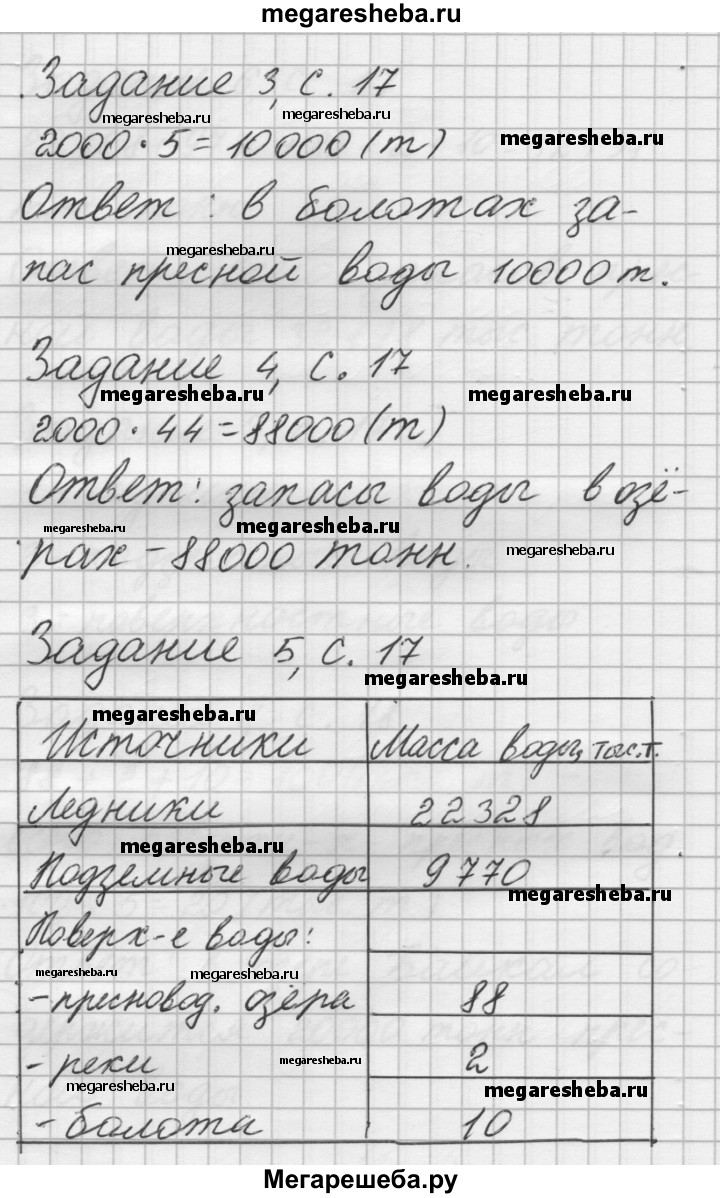 megaresheba.ru
Задание 3, с. 17
megaresheba.ru megaresheba.ru
2000 · 5 = 10000 (т) megaresheba.ru
Ответ : в болотах за-
megaresheba.ru
пас пресной воды 10000 т.
Задание 4, с. 17
megaresheba.ru megaresheba.ru
2000 · 44 = 88000 (т)
Ответ: запасы воды в озё-
megaresheba.ru megaresheba.ru
рах - 88000 тонн. megaresheba.ru
Задание 5, с. 17
megaresheba.ru
megaresheba.ru
Источники Масса воды, тыс.т.
Ледники 22328
megaresheba.ru
Подземные воды 9770
megaresheba.ru
Поверх-е воды:
megaresheba.ru megaresheba.ru
- пресновод. озёра 88
- реки 2
megaresheba.ru
megaresheba.ru megaresheba.ru
- болота 10
Мегарешеба.ру